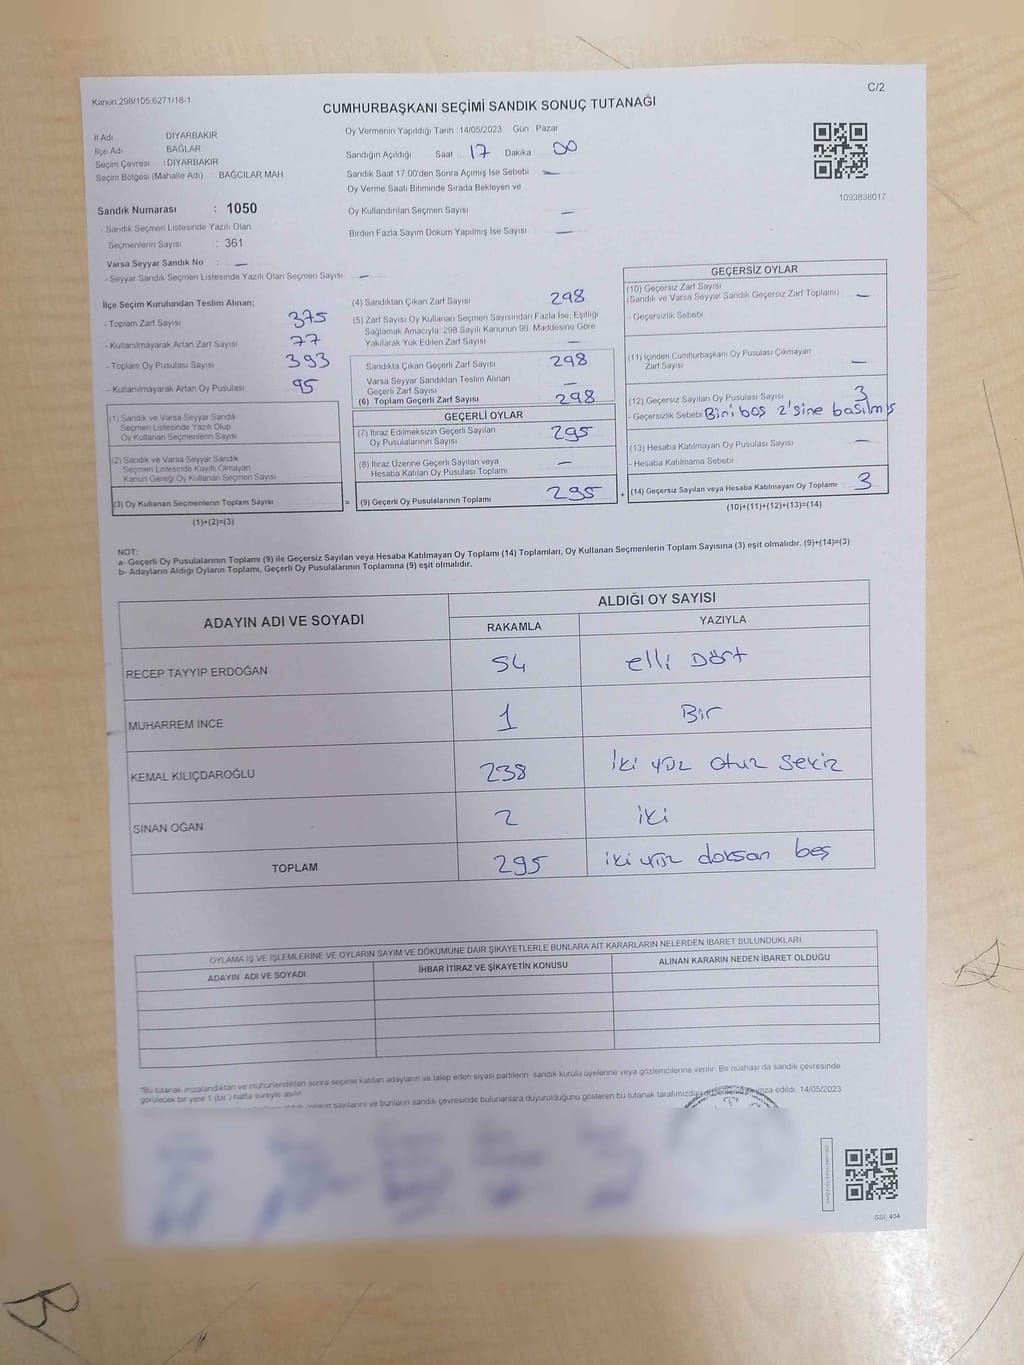 Kanun 298/105.6271/18-1
C/2
CUMHURBAŞKANI SEÇİMİ SANDIK SONUÇ TUTANAĞI
İl Adı DİYARBAKIR
İlçe Adı BAĞLAR
Seçim Çevresi : DİYARBAKIR
Seçim Bölgesi (Mahalle Adı) BAĞCILAR MAH.
Oy Vermenin Yapıldığı Tarih :14/05/2023 Gün : Pazar
Sandığın Açıldığı Saat : 17 Dakika 00
Sandık Saat 17.00'den Sonra Açımış İse Sebebi —
Oy Verme Saati Bitiminde Sırada Bekleyen ve
Oy Kullandırılan Seçmen Sayısı —
Birden Fazla Sayım Döküm Yapılmış İse Sayısı —
1093838017
Sandık Numarası : 1050
- Sandık Seçmen Listesinde Yazılı Olan
Seçmenlerin Sayısı : 361
Varsa Seyyar Sandık No : —
- Seyyar Sandık Seçmen Listesinde Yazılı Olan Seçmen Sayısı —
İlçe Seçim Kurulundan Teslim Alınan;
- Toplam Zarf Sayısı 375
- Kullanılmayarak Artan Zarf Sayısı 77
- Toplam Oy Pusulası Sayısı 393
- Kullanılmayarak Artan Oy Pusulası 95
(1) Sandık ve Varsa Seyyar Sandık
Seçmen Listesinde Yazılı Olup
Oy Kullanan Seçmenlerin Sayısı
(2) Sandık ve Varsa Seyyar Sandık
Seçmen Listesinde Kayıtlı Olmayan
Kanun Gereği Oy Kullanan Seçmen Sayısı
(3) Oy Kullanan Seçmenlerin Toplam Sayısı =
(1)+(2)=(3)
(4) Sandıktan Çıkan Zarf Sayısı 298
(5) Zarf Sayısı Oy Kullanan Seçmen Sayısından Fazla İse, Eşitliği
Sağlamak Amacıyla, 298 Sayılı Kanunun 98. Maddesine Göre
Yakılarak Yok Edilen Zarf Sayısı —
Sandıkta Çıkan Geçerli Zarf Sayısı 298
Varsa Seyyar Sandıktan Teslim Alınan
Geçerli Zarf Sayısı —
(6) Toplam Geçerli Zarf Sayısı 298
GEÇERLİ OYLAR
(7) İtiraz Edilmeksizin Geçerli Sayılan
Oy Pusulalarının Sayısı 295
(8) İtiraz Üzerine Geçerli Sayılan veya
Hesaba Katılan Oy Pusulası Toplamı —
(9) Geçerli Oy Pusulalarının Toplamı 295 +
GEÇERSİZ OYLAR
(10) Geçersiz Zarf Sayısı
(Sandık ve Varsa Seyyar Sandık Geçersiz Zarf Toplamı) —
- Geçersizlik Sebebi
(11) İçinden Cumhurbaşkanı Oy Pusulası Çıkmayan
Zarf Sayısı —
(12) Geçersiz Sayılan Oy Pusulası Sayısı 3
- Geçersizlik Sebebi Bini boş 2'sine basılmış
(13) Hesaba Katılmayan Oy Pusulası Sayısı —
- Hesaba Katılmama Sebebi
(14) Geçersiz Sayılan veya Hesaba Katılmayan Oy Toplamı 3
(10)+(11)+(12)+(13)=(14)
NOT:
a- Geçerli Oy Pusulalarının Toplamı (9) ile Geçersiz Sayılan veya Hesaba Katılmayan Oy Toplamı (14) Toplamları, Oy Kullanan Seçmenlerin Toplam Sayısına (3) eşit olmalıdır. (9)+(14)=(3)
b- Adayların Aldığı Oyların Toplamı, Geçerli Oy Pusulalarının Toplamına (9) eşit olmalıdır.
ADAYIN ADI VE SOYADI ALDIĞI OY SAYISI
RAKAMLA YAZIYLA
RECEP TAYYİP ERDOĞAN 54 elli Dört
MUHARREM İNCE 1 Bir
KEMAL KILIÇDAROĞLU 238 iki yüz otuz sekiz
SİNAN OĞAN 2 iki
TOPLAM 295 iki yüz doksan beş
OYLAMA İŞ VE İŞLEMLERİNE VE OYLARIN SAYIM VE DÖKÜMÜNE DAİR ŞİKAYETLERLE BUNLARA AİT KARARLARIN NELERDEN İBARET BULUNDUKLARI
ADAYIN ADI VE SOYADI İHBAR İTİRAZ VE ŞİKAYETİN KONUSU ALINAN KARARIN NEDEN İBARET OLDUĞU
"Bu tutanak imzalandıktan ve mühürlendikten sonra seçime katılan adayların ve talep eden siyasi partilerin sandık kurulu üyelerine veya gözlemcilerine verilir. Bir nüshası da sandık çevresinde
görülecek bir yere 1 (bir ) hafta süreyle asılır.
sayılarını ve bunların sandık çevresinde bulunanlara duyurulduğunu gösteren bu tutanak tarafımızdan imza edildi. 14/05/2023
SSİ_404
B